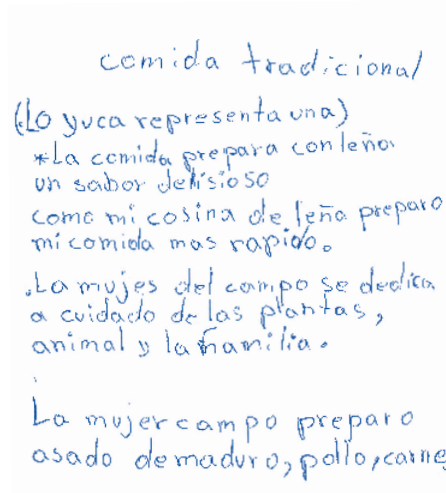 comida tradicional
(Lo yuca representa una)
*La comida prepara con leña
un sabor delisioso
como mi cosina de leña preparo
mi comida mas rapido.
.La mujes del campo se dedica
a cuidado de las plantas,
animal y la familia.
La mujer campo preparo
asado de maduro, pollo, carne